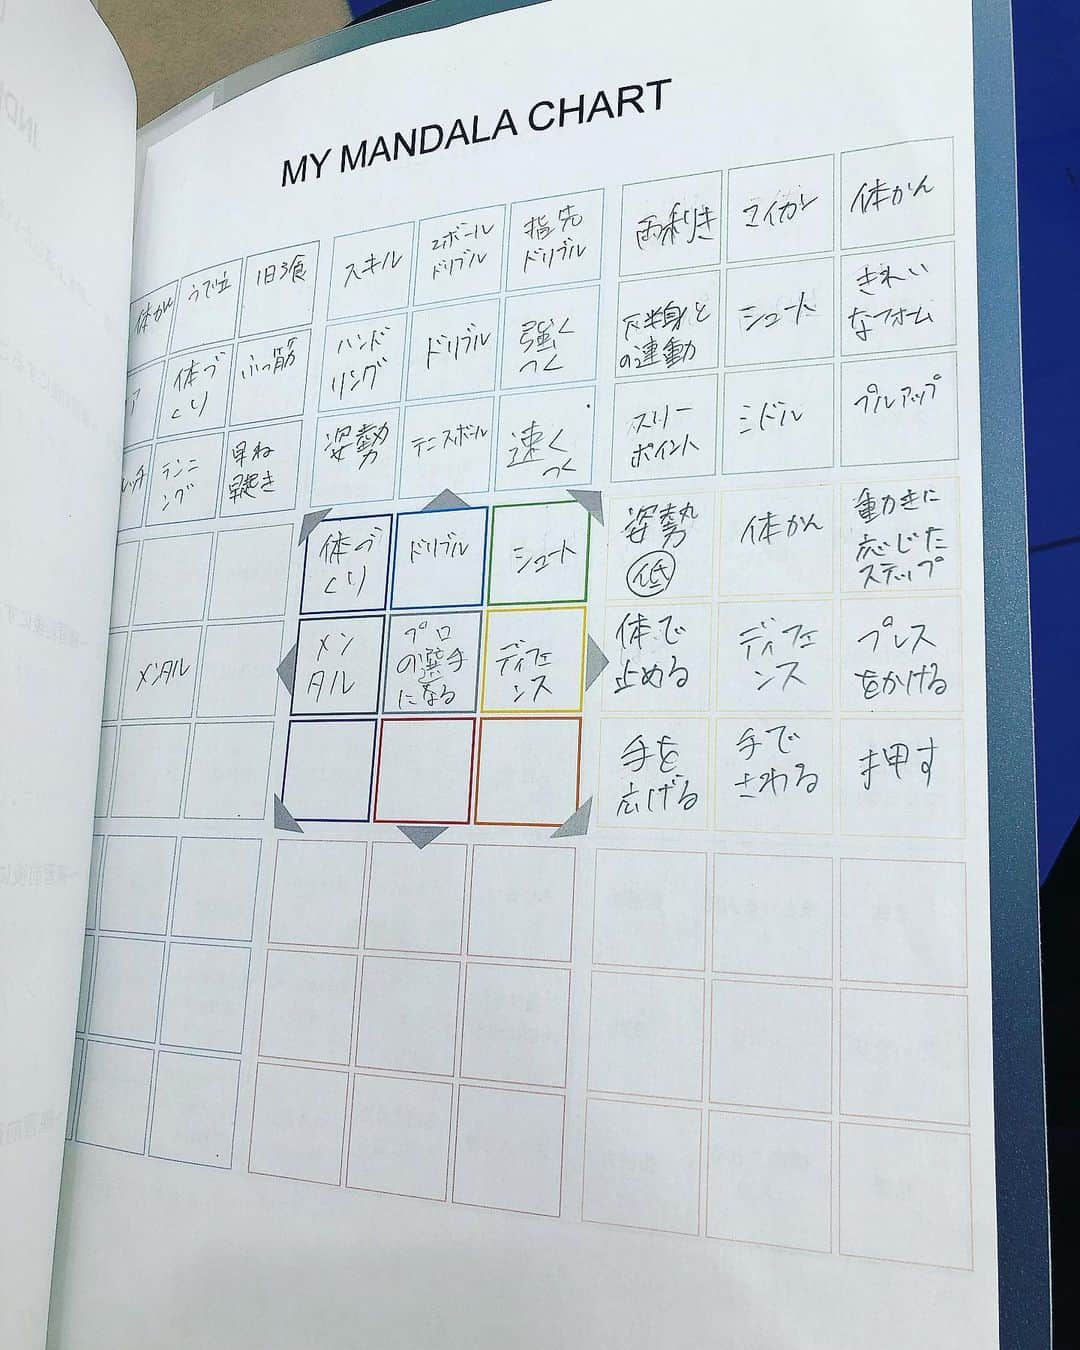 MY MANDALA CHART
体かん
うで立
1日3食
スキル
2ボール
ドリブル
指先
ドリブル
両利き
マイカン
体かん
体づ
くり
ふっ筋
ハンド
リング
ドリブル
強く
つく
下半身と
の連動
シュート
きれい
なフォーム
ランニ
ング
早ね
早起き
姿勢
テニスボール
速く
つく
スリー
ポイント
ミドル
プルアップ
体づ
くり
ドリブル
シュート
姿勢
低
体かん
動きに
応じた
ステップ
メンタル
メン
タル
プロ
の選手
になる
ディフェ
ンス
体で
止める
ディフェ
ンス
プレス
をかける
手を
広げる
手で
さわる
押す